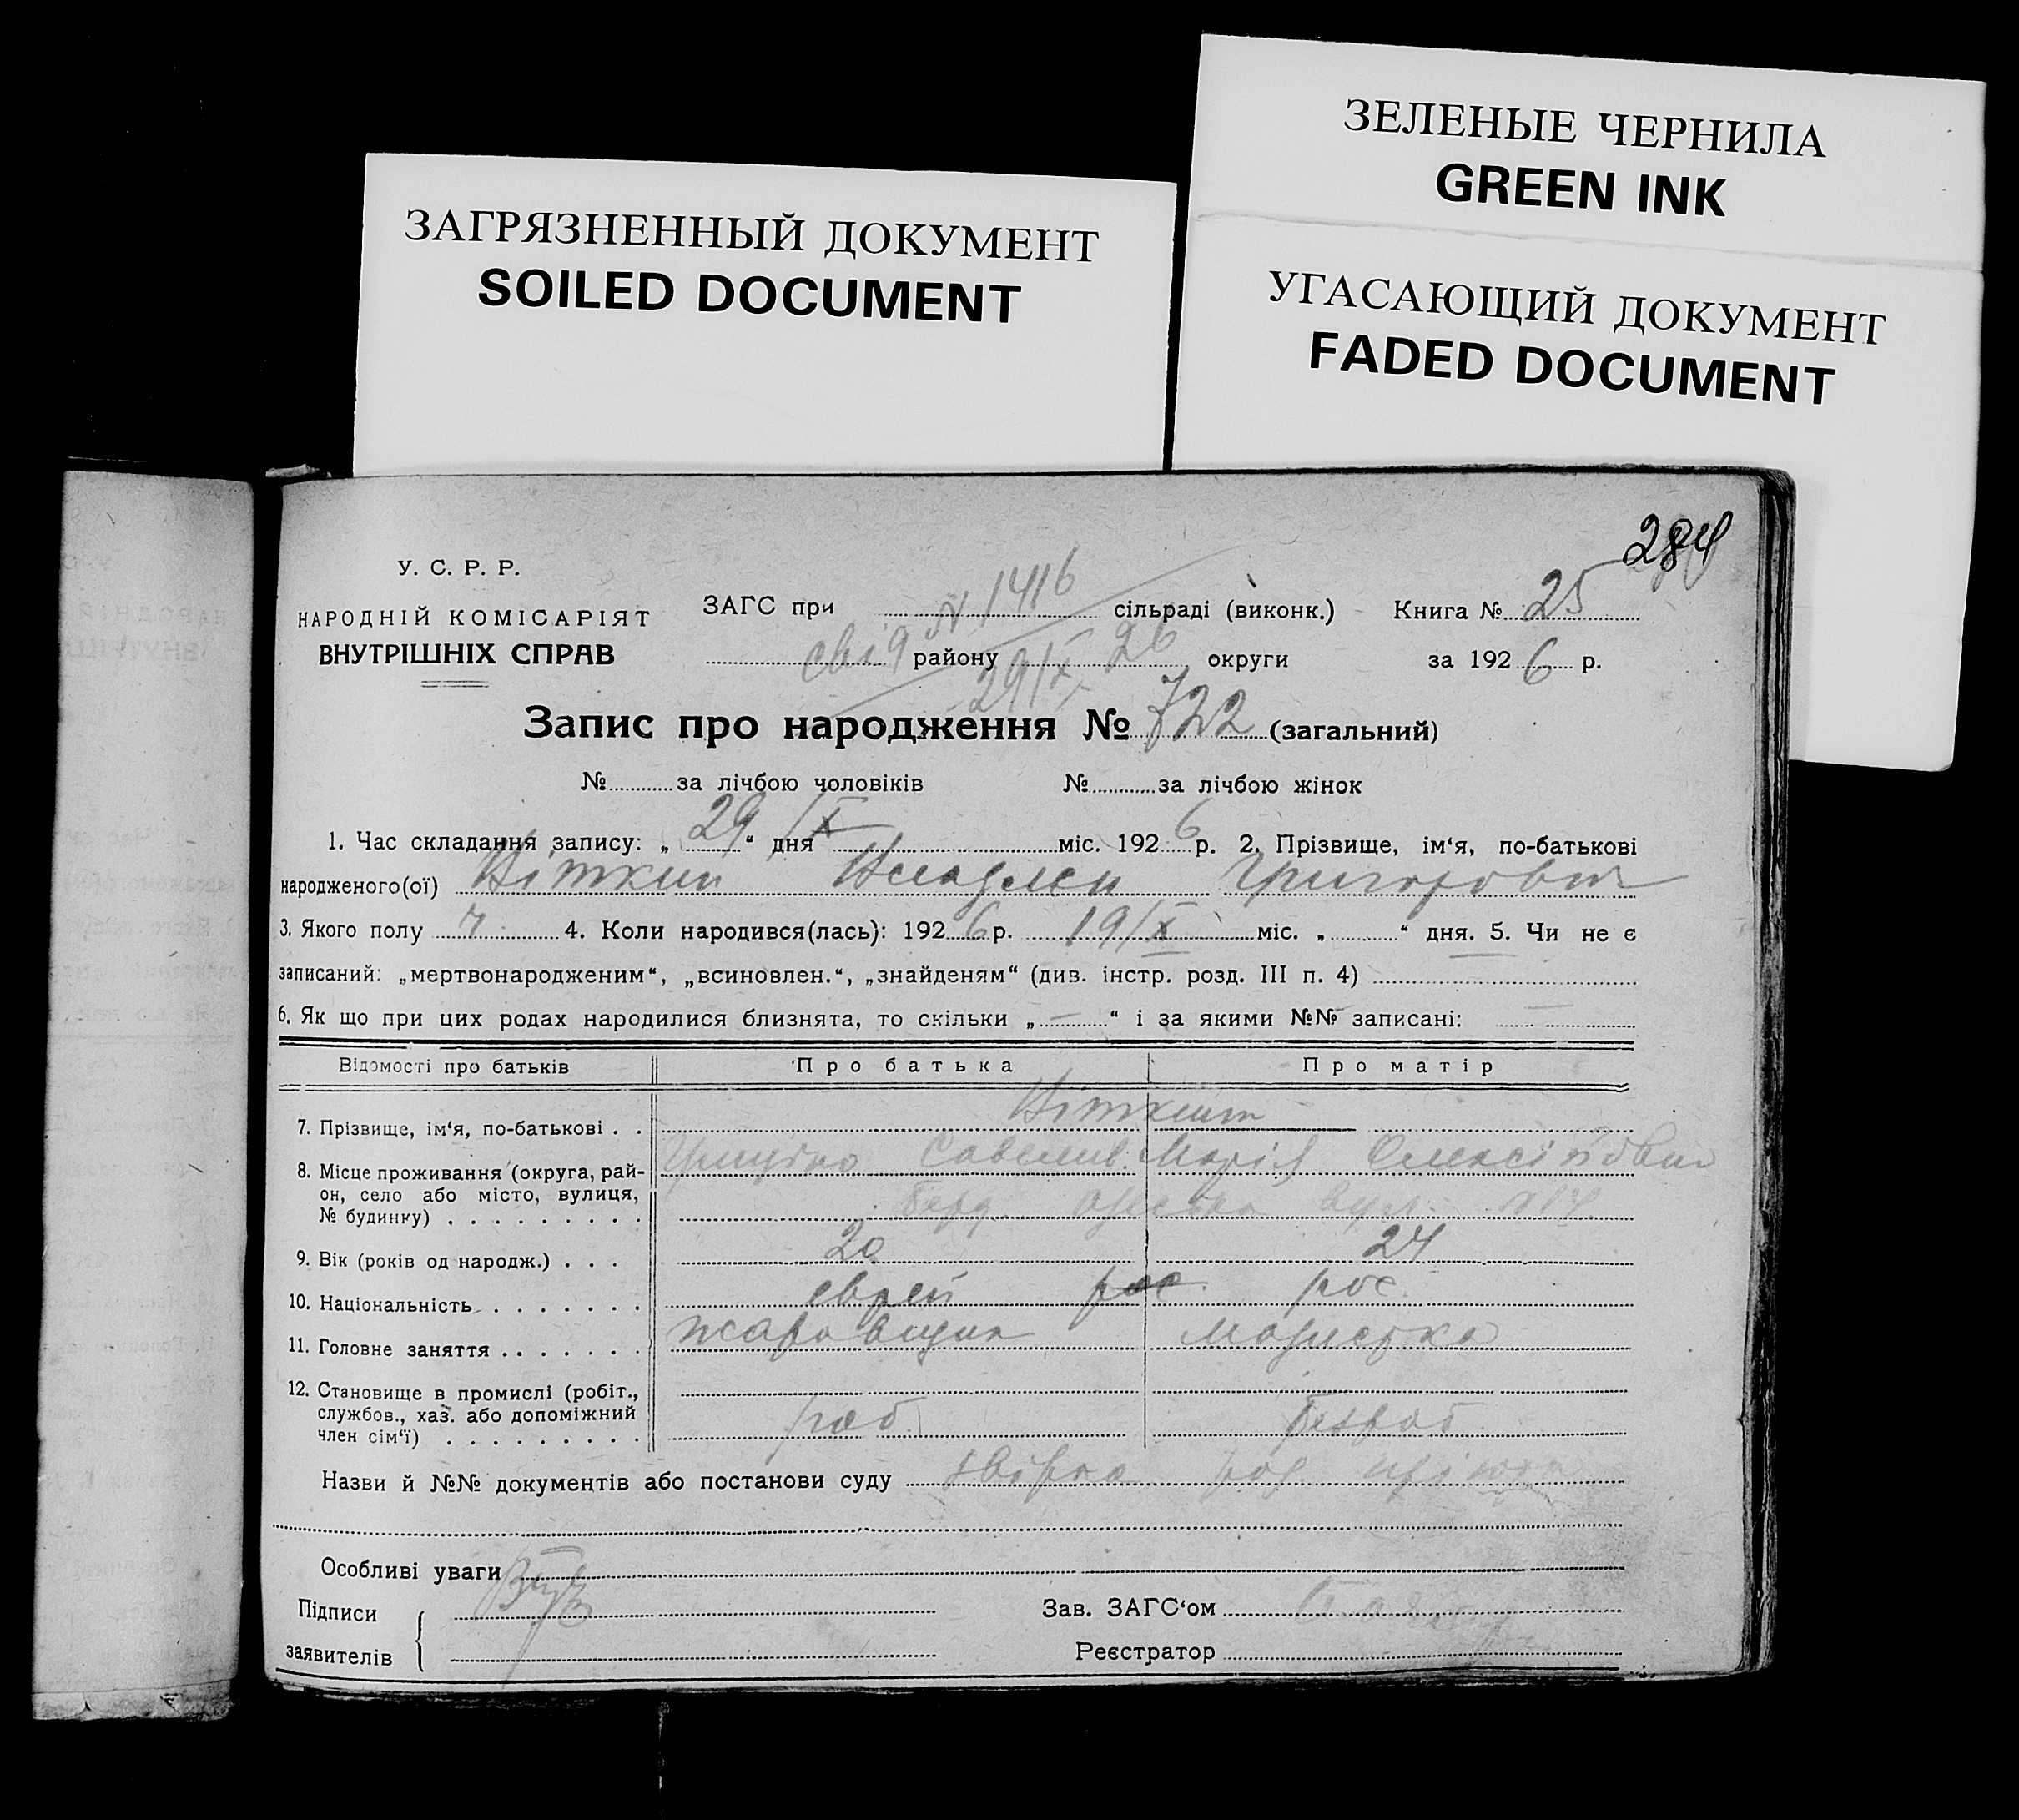 ЗЕЛЕНЫЕ ЧЕРНИЛА
GREEN INK
УГАСАЮЩИЙ ДОКУМЕНТ
FADED DOCUMENT
ЗАГРЯЗНЕННЫЙ ДОКУМЕНТ
SOILED DOCUMENT
284
У. С. Р. Р.
НАРОДНІЙ КОМІСАРІЯТ
ВНУТРІШНІХ СПРАВ
ЗАГС при сільраді (виконк.) Книга № 25
району округи за 1926 р.
свід N 1416
29/IX 26
Запис про народження № 722 (загальний)
№ за лічбою чоловіків № за лічбою жінок
1. Час складання запису: „ 29 “ дня IX міс. 1926 р. 2. Прізвище, ім‘я, по-батькові
народженого(ої) Віткин Владлен Григорович
3. Якого полу ч 4. Коли народився(лась): 1926 р. 19/IX міс. „ “ дня. 5. Чи не є
записаний: „мертвонародженим“, „всиновлен.“, „знайденям“ (див. інстр. розд. III п. 4)
6. Як що при цих родах народилися близнята, то скільки „ — “ і за якими №№ записані: —
Відомості про батьків Про батька Про матір
7. Прізвище, ім‘я, по-батькові . .
Савелив. Марія Олексіївна
8. Місце проживання (округа, рай-
он, село або місто, вулиця,
№ будинку) . . . . . . . . . вул.
9. Вік (років од народж.) . . . 20 24
10. Національність . . . . . . . еврей рос. рос.
11. Головне заняття . . . . . . . модистка
12. Становище в промислі (робіт.,
службов., хаз. або допоміжний
член сім‘ї) . . . . . . . . . роб. безроб.
Назви й №№ документів або постанови суду
Особливі уваги
Підписи
заявителів
Зав. ЗАГС‘ом
Реєстратор